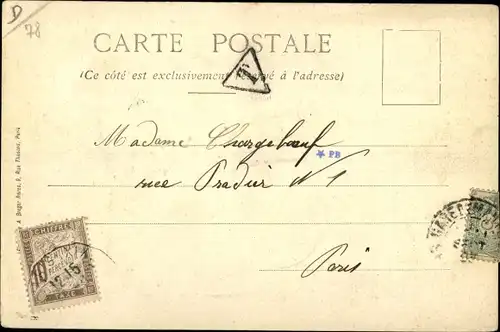 D
78
CARTE POSTALE
(Ce côté est exclusivement réservé à l'adresse)
T
Madame Chargeboeuf
★ PB
rue Pradier N 1
Paris
A. Berger Frères, 9, Rue Thénard, Paris
CHIFFRE
10
TAXE